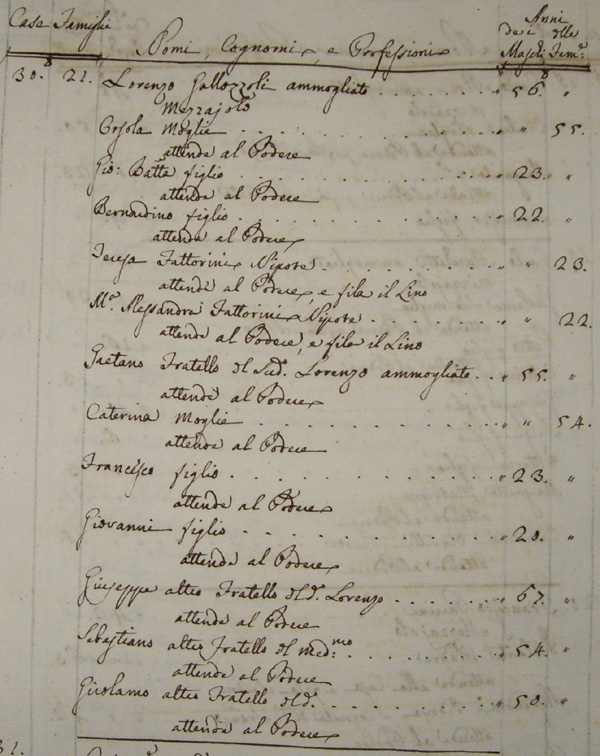 Case Famiglie Nomi, Cognomi, e Professioni Anni
dei delle
Maschi Fem.e
30. 21. Lorenzo Gallozzoli ammogliato . . . . . . . " 56. "
Mezzajolo
Orsola Moglie . . . . . . . . . . . " " 55.
attende al Podere
Gio: Batta figlio . . . . . . . . . . . " 23. "
attende al Podere
Bernardino figlio . . . . . . . . . . . " 22. "
attende al Podere
Teresa Fattorini Nipote . . . . . . . . " " 23.
attende al Podere, e fila il Lino
M.a Alessandra Fattorini Nipote . . . . . . . " " 22.
attende al Podere, e fila il Lino
Gaetano Fratello del Sud.o Lorenzo ammogliato . . " 55. "
attende al Podere
Caterina Moglie . . . . . . . . . . . " " 54.
attende al Podere
Francesco figlio . . . . . . . . . . . " 23. "
attende al Podere
Giovanni figlio . . . . . . . . . . . " 20. "
attende al Podere
Giuseppe altro Fratello del d.o Lorenzo . . . . . . " 67. "
attende al Podere
Sebastiano altro Fratello del med.mo . . . . . . . " 54. "
attende al Podere
Girolamo altro Fratello del d.o . . . . . . . . " 50. "
attende al Podere
31.